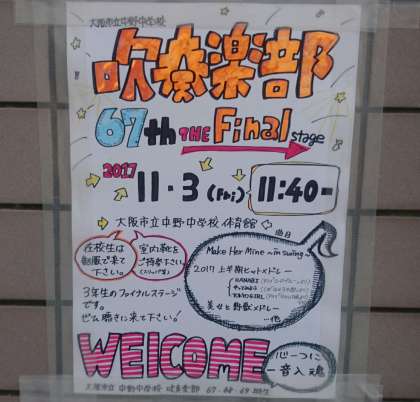 大阪市立中野中学校
吹奏楽部
67th THE Final stage
2017
11・3 (Fri) 11:40〜
大阪市立中野中学校 体育館
在校生は
制服で来て
下さい。
室内靴を
ご持参下さい
(スリッパ等)
3年生のファイナルステージ
です。
ぜひ聴きに来て下さい!
曲目
Make Her Mine 〜in swing〜
2017 上半期ヒットメドレー
美女と野獣メドレー
…他
WELCOME
心一つに
一音入魂
大阪市立 中野中学校 吹奏楽部 67・68・69期生